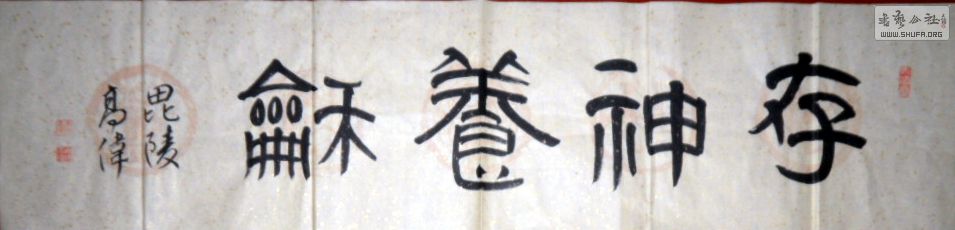 存神養龢
毘陵
高偉
書藝公社
WWW.SHUFA.ORG